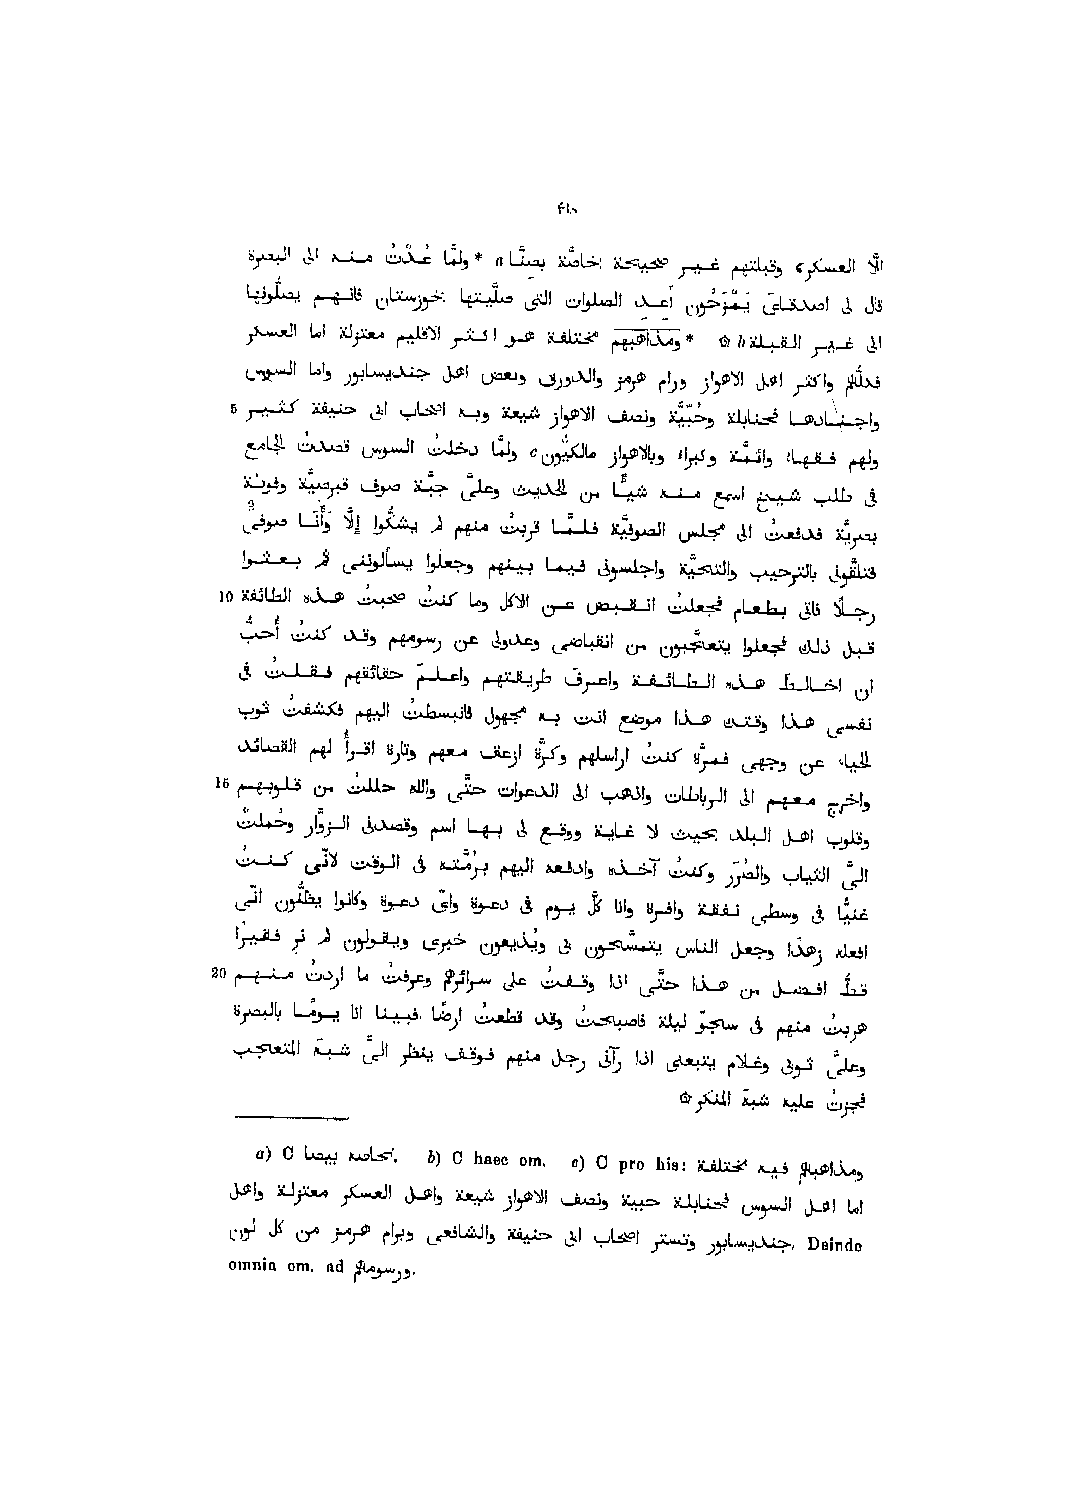 ٤١٥
الّا العسكر، وقبلتهم غير صحيحة خاصّة بصنّا a * ولمّا عُدْتُ منه الى البصرة
قال لى اصدقاءى يَمْزَحُون أعد الصلوات التى صلّيتها بخوزستان فانهم يصلّونها
الى غير القبلة b ۞ * ومذاهبهم مختلفة هو اكثر الاقليم معتزلة اما العسكر
فكلّهم واكثر اهل الاهواز ورام هرمز والدورق وبعض اهل جنديسابور واما السوس
5 واجنادها فحنابلة وحُبّيّة ونصف الاهواز شيعة وبه اصحاب ابى حنيفة كثير
ولهم فقهاء وائمّة وكبراء وبالاهواز مالكيّون c ولمّا دخلتُ السوس قصدتُ الجامع
فى طلب شيخ اسمع منه شيئًا من الحديث وعلىَّ جبّة صوف قبرصيّة وفوطة
بصريّة فدفعتُ الى مجلس الصوفيّة فلمّا قربتُ منهم لم يشكّوا إلّا وأَنَا صوفىّ
فتلقّونى بالترحيب والتحيّة واجلسونى فيما بينهم وجعلوا يسألوننى ثم بعثوا
10 رجلًا فاتى بطعام فجعلتُ انقبض عن الاكل وما كنتُ صحبتُ هذه الطائفة
قبل ذلك فجعلوا يتعجّبون من انقباضى وعدولى عن رسومهم وقد كنتُ أُحبُّ
ان اخالط هذه الطائفة واعرفَ طريقتهم واعلمَ حقائقهم فقلتُ فى
نفسى هذا وقتك هذا موضع انت به مجهول فانبسطتُ اليهم فكشفتُ ثوب
الحياء عن وجهى فمرّة كنتُ اراسلهم وكرّة ازعق معهم وتارة اقرأُ لهم القصائد
15 واخرج معهم الى الرباطات واذهب الى الدعوات حتّى والله حللتُ من قلوبهم
وقلوب اهل البلد بحيث لا غاية ووقع لى بها اسم وقصدنى الزوّار وحُملتْ
الىَّ الثياب والصُرَر وكنتُ آخذه وادفعه اليهم برُمّته فى الوقت لانّى كنتُ
غنيًّا فى وسطى نفقة وافرة وانا كلَّ يوم فى دعوة واىّ دعوة وكانوا يظنُّون انّى
افعله زهدًا وجعل الناس يتمسّحون بى ويُذيعون خبرى ويقولون لم نر فقيرًا
20 قطُّ افضل من هذا حتّى اذا وقفتُ على سرائرهم وعرفتُ ما اردتُ منهم
هربتُ منهم فى سجوّ ليلة فاصبحتُ وقد قطعتُ ارضًا، فبينا انا يومًا بالبصرة
وعلىَّ ثوبى وغلام يتبعنى اذا رآنى رجل منهم فوقف ينظر الىَّ شبهَ المتعجّب
فجزتُ عليه شبهَ المنكر ۞
a) C خاصه بيصا. b) C haec om. c) C pro his: ومذاهبهم فيه مختلفة
اما اهل السوس فحنابلة حبية ونصف الاهواز شيعة واهل العسكر معتزلة واهل
جنديسابور وتستر اصحاب ابى حنيفة والشافعى وبرام هرمز من كل لون. Deinde
omnia om. ad ورسومهم.